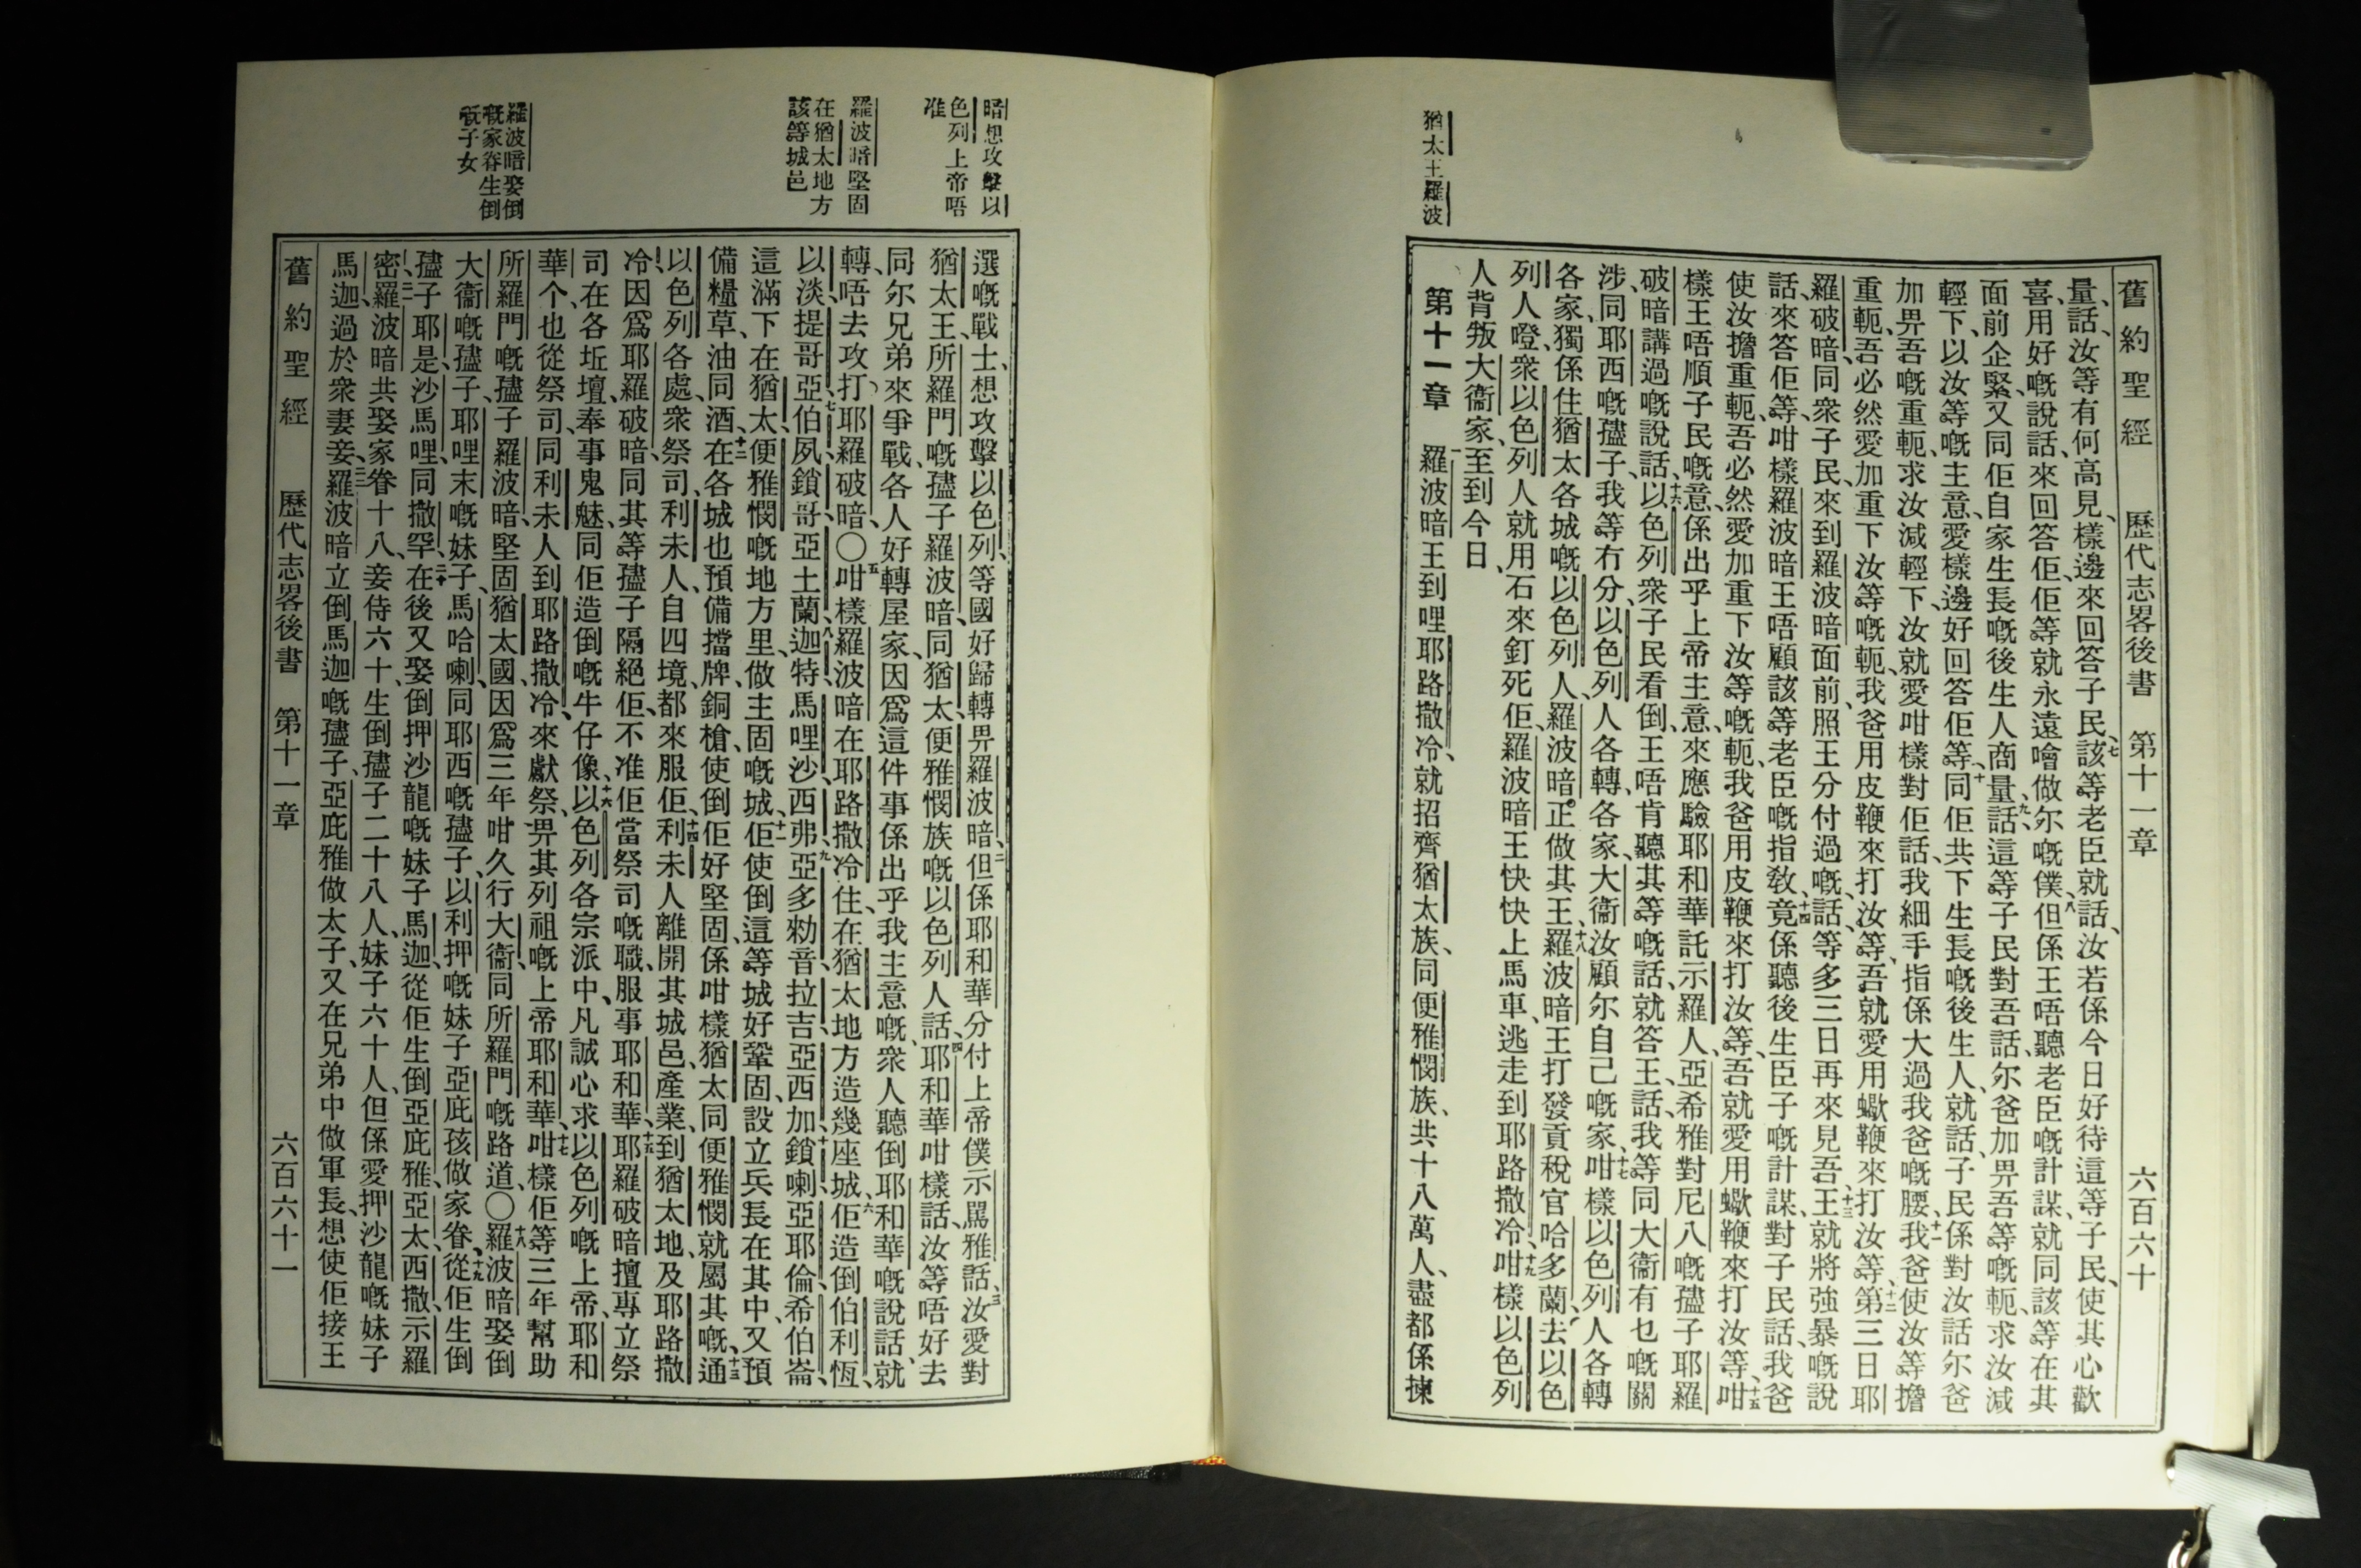 舊約聖經 歷代志畧後書 第十一章 六百六十
量、話、汝等有何高見、樣邊來回答子民、七該等老臣就話、汝若係今日好待這等子民、使其心歡
喜、用好嘅說話、來回答佢、佢等就永遠噲做尔嘅僕、八但係王唔聽老臣嘅計謀、就同該等在其
面前企緊、又同佢自家生長嘅後生人商量、九話、這等子民對吾話、尔爸加畀吾等嘅軛、求汝減
輕下、以汝等嘅主意、愛樣邊好回答佢等、十同佢共下生長嘅後生人、就話、子民係對汝話尔爸
加畀吾嘅重軛、求汝減輕下、汝就愛咁樣對佢話、我細手指係大過我爸嘅腰、十一我爸使汝等擔
重軛、吾必然愛加重下汝等嘅軛、我爸用皮鞭來打汝等、吾就愛用蠍鞭來打汝等、十二第三日耶
羅破暗、同衆子民、來到羅波暗面前、照王分付過嘅、話、等多三日再來見吾、十三王就將強暴嘅說
話、來答佢等、咁樣羅波暗王唔顧該等老臣嘅指敎、十四竟係聽後生臣子嘅計謀、對子民話、我爸
使汝擔重軛、吾必然愛加重下汝等嘅軛、我爸用皮鞭來打汝等、吾就愛用蠍鞭來打汝等、十五咁
樣王唔順子民嘅意、係出乎上帝主意、來應驗耶和華託示羅人、亞希雅對尼八嘅孻子耶羅
破暗講過嘅說話、十六以色列衆子民看倒、王唔肯聽其等嘅話、就答王、話、我等同大衞有乜嘅關
涉、同耶西嘅孻子、我等冇分、以色列人各轉、各家、大衞汝顧尔自己嘅家、十七咁樣以色列人各轉
各家、獨係住猶太各城嘅以色列人、羅波暗正做其王、十八羅波暗王打發貢稅官哈多蘭、去以色
列人噔、衆以色列人就用石來釘死佢、羅波暗王快快上馬車、逃走到耶路撒冷、十九咁樣以色列
人背叛大衞家、至到今日、
第十一章 一羅波暗王到哩耶路撒冷、就招齊猶太族、同便雅憫族、共十八萬人、盡都係揀
猶太王羅波
暗想攻擊以
色列上帝唔
准
羅波暗堅固
在猶太地方
該等城邑
羅波暗娶倒
嘅家眷生倒
嘅子女
選嘅戰士、想攻擊以色列等國、好歸轉畀羅波暗、二但係耶和華分付上帝僕示罵雅話、三汝愛對
猶太王、所羅門嘅孻子羅波暗、同猶太、便雅憫族嘅以色列人話、四耶和華咁樣話、汝等唔好去
同尔兄弟來爭戰、各人好轉屋家、因爲這件事係出乎我主意嘅、衆人聽倒耶和華嘅說話、就
轉、唔去攻打耶羅破暗、〇五咁樣羅波暗在耶路撒冷住、在猶太地方造幾座城、六佢造倒伯利恆、
以淡、提哥亞、七伯夙、鎖哥、亞土蘭、八迦特、馬哩沙、西弗、九亞多勑音、拉吉、亞西加、十鎖喇、亞耶倫、希伯崙、
這滿下在猶太、便雅憫嘅地方里、做主固嘅城、十一佢使倒這等城好鞏固、設立兵長在其中、又預
備糧草、油同酒、十二在各城也預備擋牌、銅槍、使倒佢好堅固、係咁樣猶太同便雅憫就屬其嘅、十三通
以色列各處、衆祭司、利未人、自四境、都來服佢、十四利未人離開其城邑、產業、到猶太地、及耶路撒
冷、因爲耶羅破暗、同其等孻子隔絕佢、不准佢當祭司嘅職、服事耶和華、十五耶羅破暗擅專立祭
司在各坵壇、奉事鬼魅、同佢造倒嘅牛仔像、十六以色列各宗派中、凡誠心求以色列嘅上帝、耶和
華个、也從祭司、同利未人到耶路撒冷、來獻祭、畀其列祖嘅上帝耶和華、十七咁樣佢等三年幫助
所羅門嘅孻子羅波暗、堅固猶太國、因爲三年咁久行大衞、同所羅門嘅路道、〇十八羅波暗娶倒
大衞嘅孻子、耶哩末嘅妹子、馬哈喇、同耶西嘅孻子、以利押嘅妹子亞庇孩做家眷、十九從佢生倒
孻子、耶是、沙馬哩、同撒罕、二十在後又娶倒押沙龍嘅妹子馬迦、從佢生倒亞庇雅、亞太、西撒、示羅
密、二一羅波暗共娶家眷十八、妾侍六十、生倒孻子二十八人、妹子六十人、但係愛押沙龍嘅妹子
馬迦、過於衆妻妾、二二羅波暗立倒馬迦嘅孻子、亞庇雅做太子、又在兄弟中做軍長、想使佢接王
舊約聖經 歷代志畧後書 第十一章 六百六十一